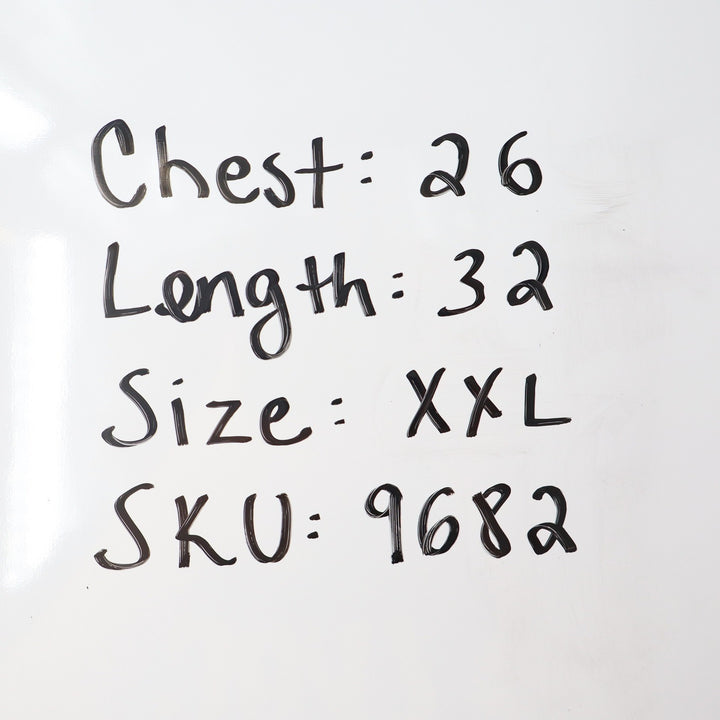 Chest: 26
Length: 32
Size: XXL
SKU: 9682